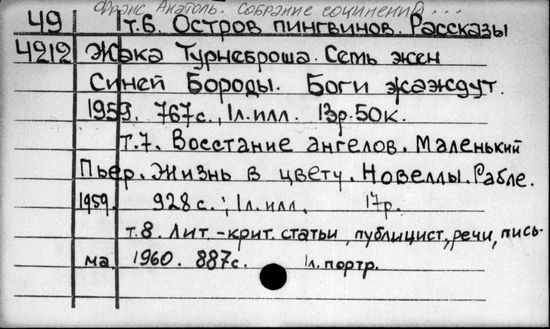 Франс Анатоль. Собрание сочинений ...
49 т.6. Остров пингвинов. Рассказы
4212 Жака Турнеброша. Семь жен
Синей Бороды. Боги жаждут.
1959. 767с., 1л.илл. 13р.50к.
т.7. Восстание ангелов. Маленький
Пьер. Жизнь в цвету. Новеллы. Рабле.
1959. 928с.; 1л.илл. 17р.
т.8. Лит.-крит. статьи, публицист, речи, пись-
ма. 1960. 887с. 1л. портр.